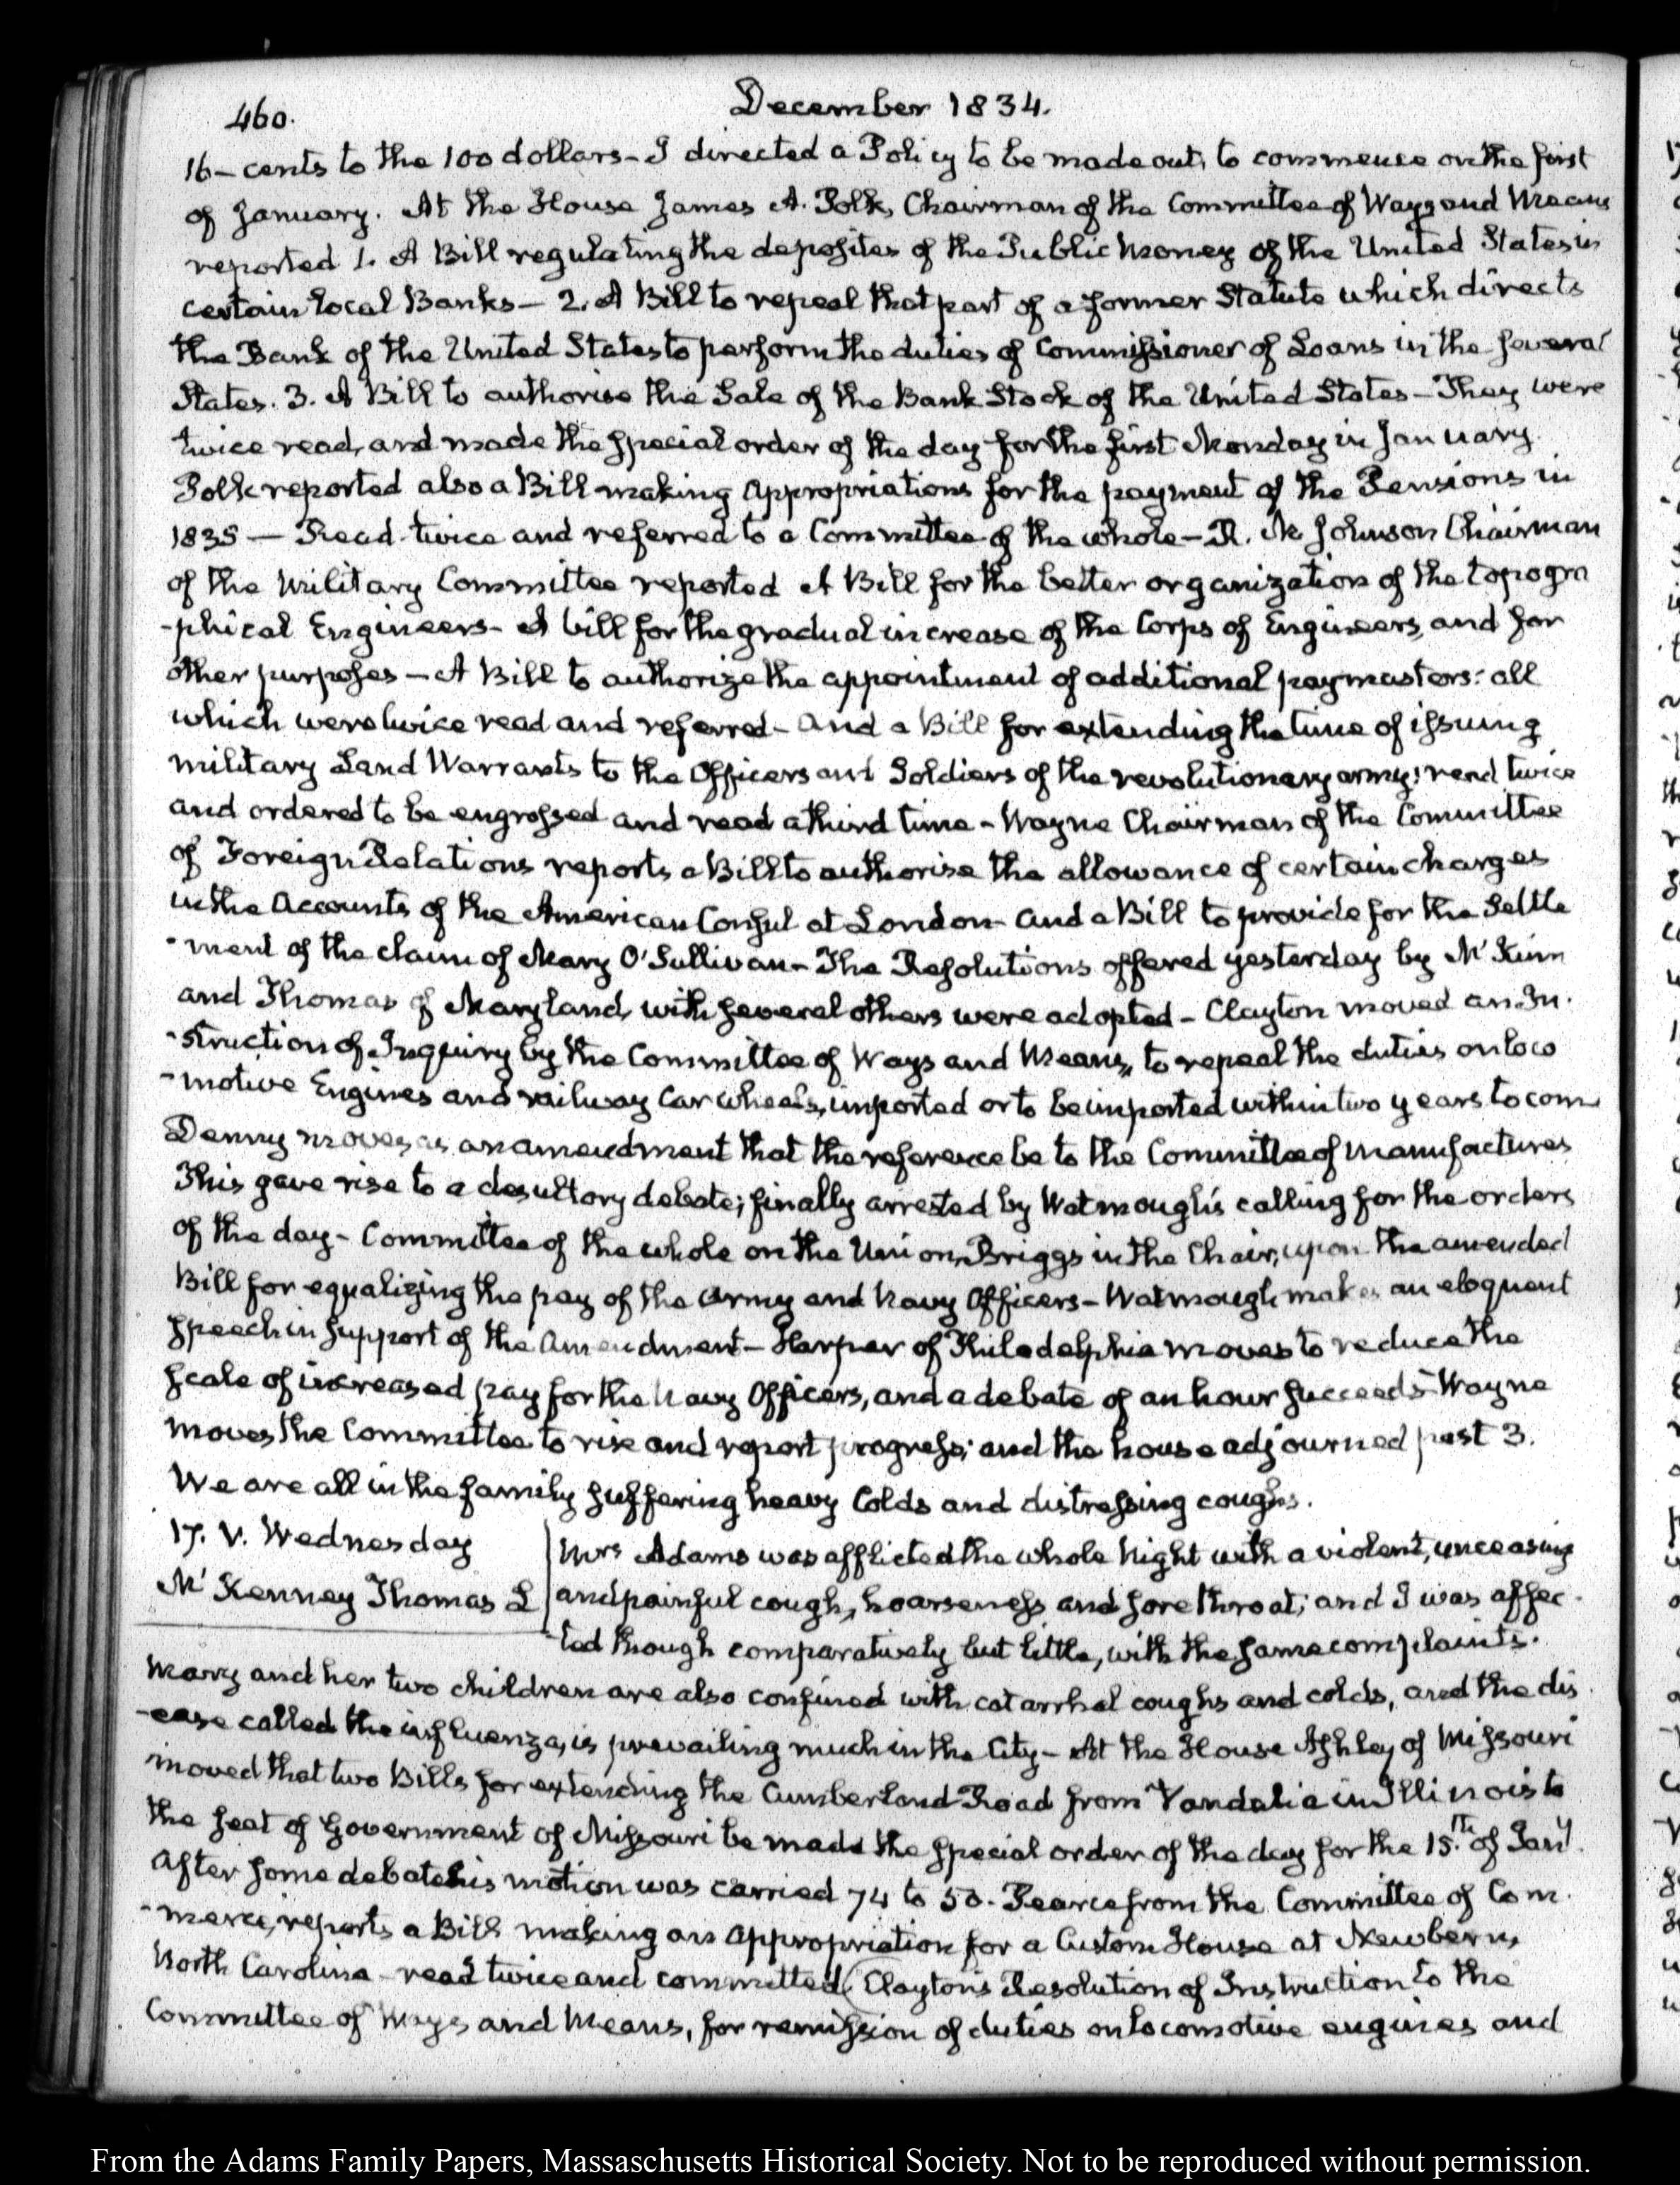 460.
December 1834.
16 – cents to the 100 dollars – I directed a Policy to be made out, to commence on the first
of January. At the House James A. Polk, Chairman of the Committee of Ways and Means
reported 1. A Bill regulating the deposites of the Public Money of the United States in
certain local Banks – 2. A Bill to repeal that part of a former Statute which directs
the Bank of the United States to perform the duties of Commissioner of Loans in the several
States. 3. A Bill to authorise the Sale of the Bank Stock of the United States – They were
twice read, and made the special order of the day for the first Monday in January.
Polk reported also a Bill making Appropriations for the payment of the Pensions in
1835 – Read twice and referred to a Committee of the whole – R. M. Johnson Chairman
of the Military Committee reported A Bill for the better organization of the topogra
-phical Engineers – A bill for the gradual increase of the Corps of Engineers, and for
other purposes – A Bill to authorize the appointment of additional paymasters: all
which were twice read and referred – and a Bill for extending the time of issuing
military Land Warrants to the Officers and Soldiers of the revolutionary army: read twice
and ordered to be engrossed and read a third time – Wayne Chairman of the Committee
of Foreign Relations reports a Bill to authorise the allowance of certain charges
in the Accounts of the American Consul at London – and a Bill to provide for the Settle
-ment of the claim of Mary O'Sullivan – The Resolutions offered yesterday by McKim
and Thomas of Maryland, with several others were adopted – Clayton moved an In-
-struction of Inquiry by the Committee of Ways and Means, to repeal the duties on loco
-motive Engines and railway Car wheels, imported or to be imported within two years to come
Denny moves, as an amendment that the reference be to the Committee of Manufactures
This gave rise to a desultory debate; finally arrested by Watmough's calling for the orders
of the day – Committee of the whole on the Union, Briggs in the Chair, upon the amended
Bill for equalizing the pay of the Army and Navy Officers – Watmough makes an eloquent
speech in support of the Amendment – Harper of Philadelphia moves to reduce the
scale of increased pay for the Navy Officers, and a debate of an hour succeeds – Wayne
moves the Committee to rise and report progress; and the house adjourned past 3.
We are all in the family suffering heavy Colds and distressing coughs.
17. V. Wednesday
McKenney Thomas L
Mrs Adams was afflicted the whole Night with a violent, unceasing
and painful cough, hoarseness and sore throat; and I was affec-
-ted though comparatively but little, with the same complaints.
Mary and her two children are also confined with catarrhal coughs and colds, and the dis
-ease called the influenza, is prevailing much in the City – At the House Ashley of Missouri
moved that two Bills for extending the Cumberland Road from Vandalia in Illinois to
the seat of Government of Missouri be made the special order of the day for the 15th of Jany.
After some debate his motion was carried 74 to 50. Pearce from the Committee of Com-
-merce, reports a Bill making an Appropriation for a Custom House at Newbern,
North Carolina – read twice and committed (Clayton's Resolution of Instruction to the
Committee of Ways and Means, for remission of duties on locomotive engines and
From the Adams Family Papers, Massaschusetts Historical Society. Not to be reproduced without permission.